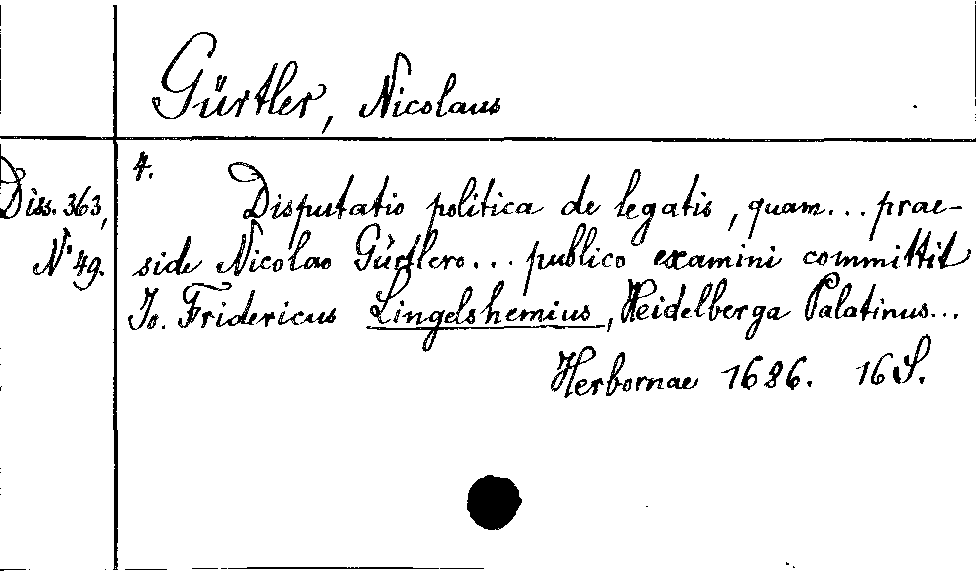 Gürtler, Nicolaus
4.
Diss. 363,
No 49.
Disputatio politica de legatis, quam... prae-
side Nicolao Gürtlero... publico examini committit
Jo. Fridericus Lingelshemius, Heidelberga Palatinus...
Herbornae 1686. 16 S.